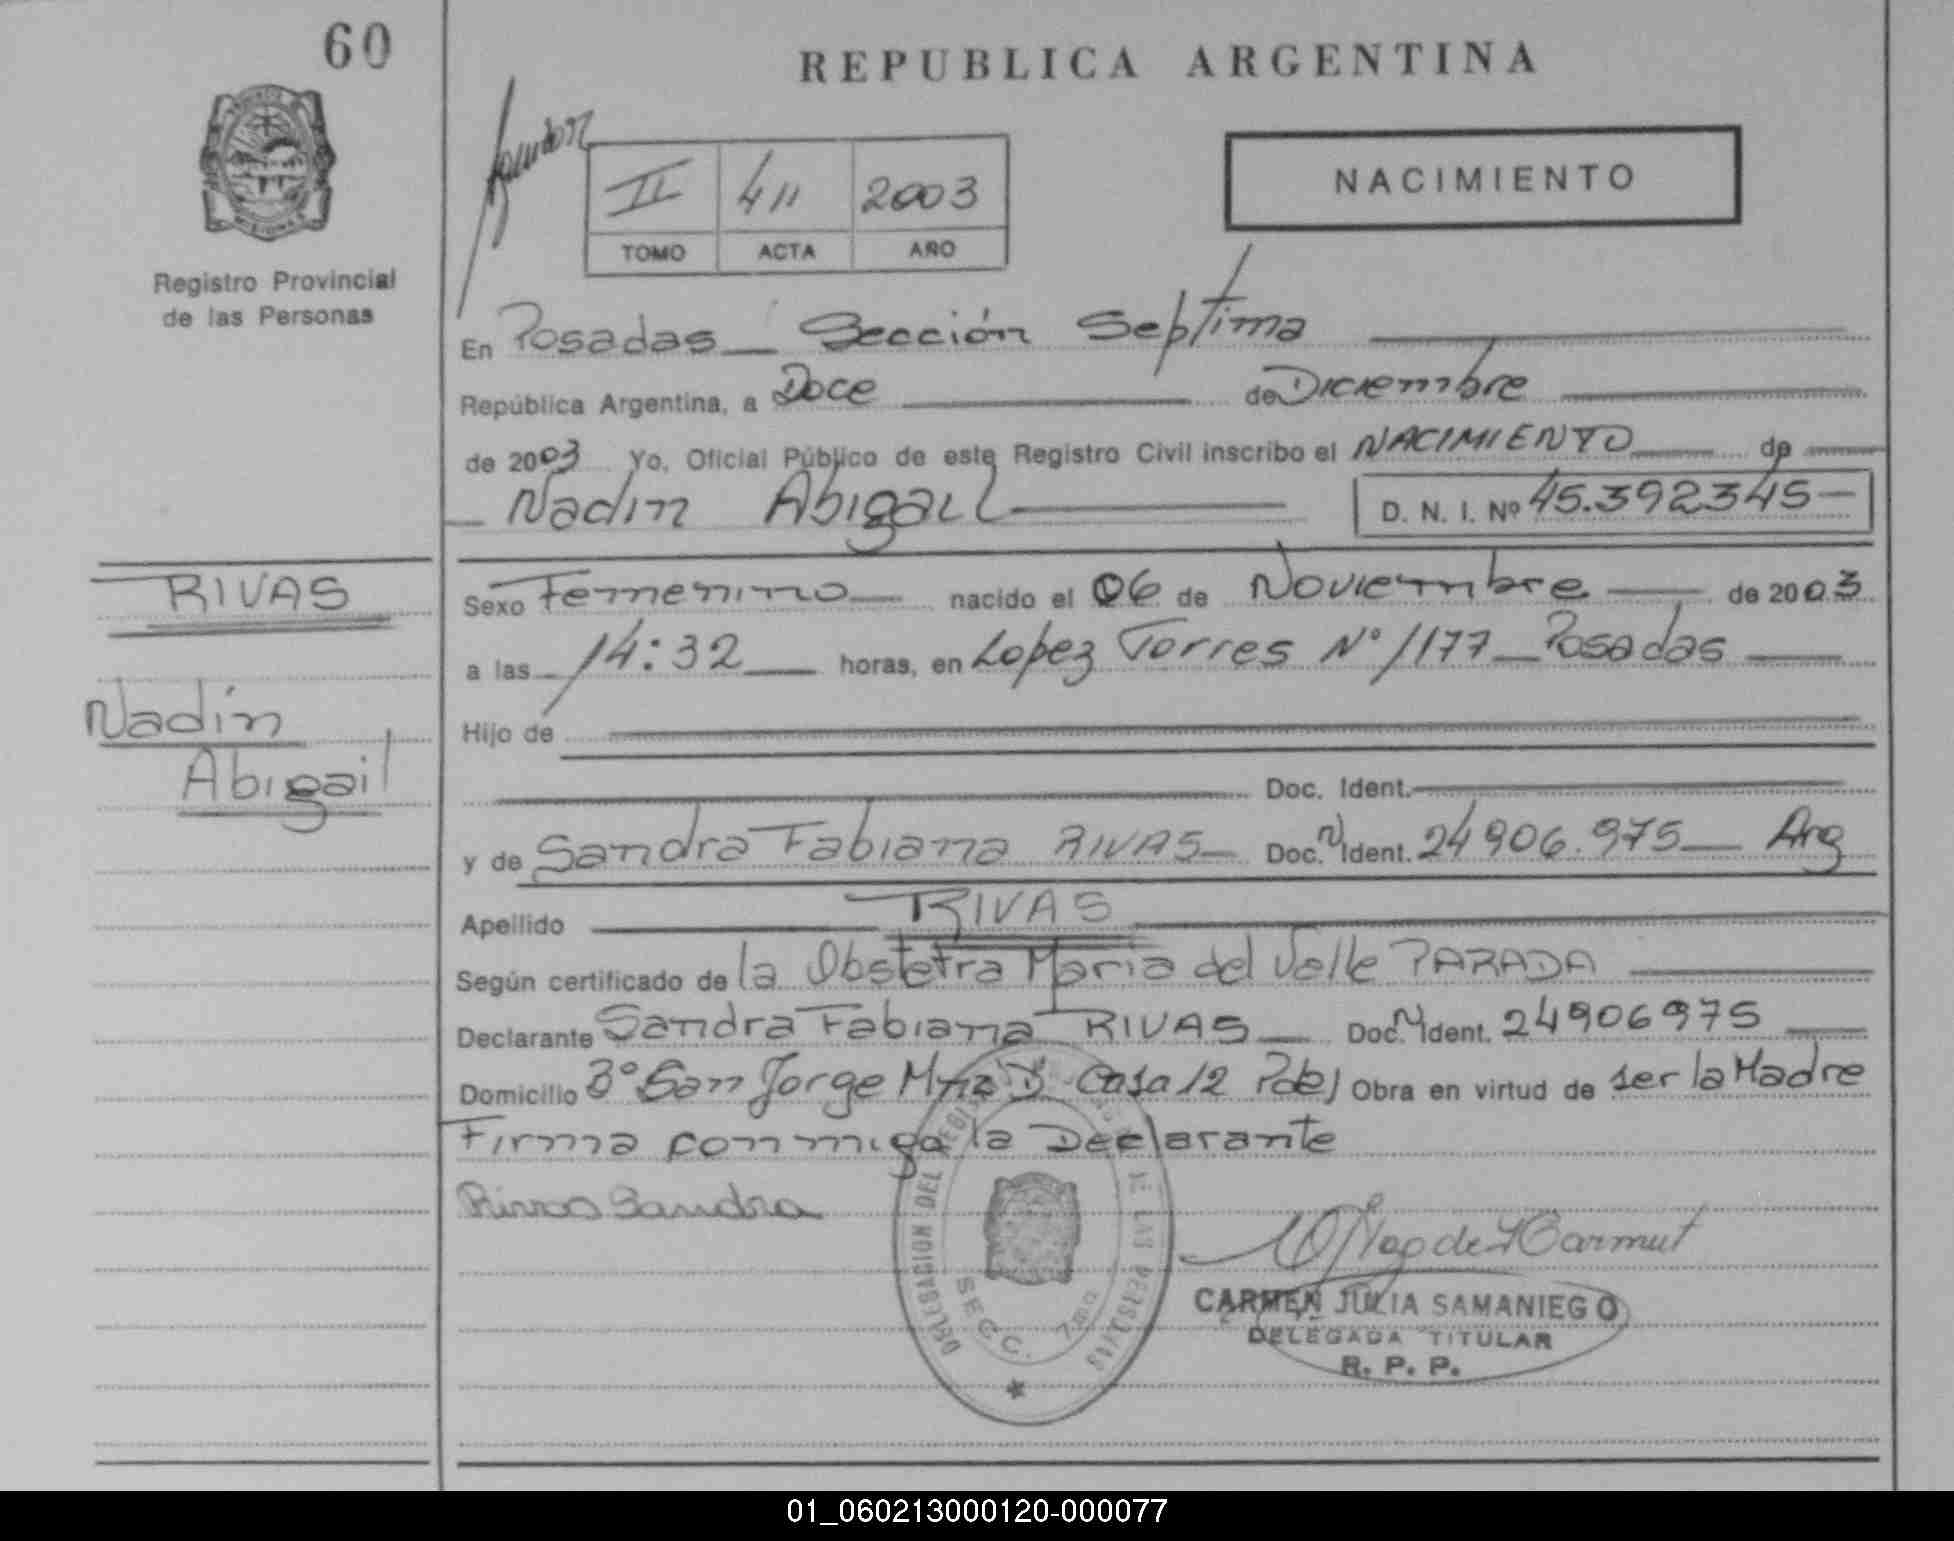 60
REPUBLICA ARGENTINA
Registro Provincial
de las Personas
II 411 2003
TOMO ACTA AÑO
NACIMIENTO
En Posadas Sección Septima
República Argentina, a Doce de Diciembre
de 2003 Yo, Oficial Público de este Registro Civil inscribo el NACIMIENTO de
Nadin Abigail D. N. I. Nº 45.392345
RIVAS
Nadín
Abigail
Sexo Femenino nacido el 06 de Noviembre de 2003
a las 14:32 horas, en Lopez Torres Nº 1177 Posadas
Hijo de
Doc. Ident.
y de Sandra Fabiana RIVAS Doc. N Ident. 24906.975 Arg
Apellido RIVAS
Según certificado de la Obstetra Maria del Valle PARADA
Declarante Sandra Fabiana RIVAS Doc. N Ident. 24906975
Domicilio Bº San Jorge Mnz D Casa 12 Pdas Obra en virtud de ser la Madre
Firma conmigo la Declarante
Rivas Sandra
DELEGACION DEL REGISTRO DE LAS PERSONAS
SECC. 7ma
CARMEN JULIA SAMANIEGO
DELEGADA TITULAR
R. P. P.
01_060213000120-000077